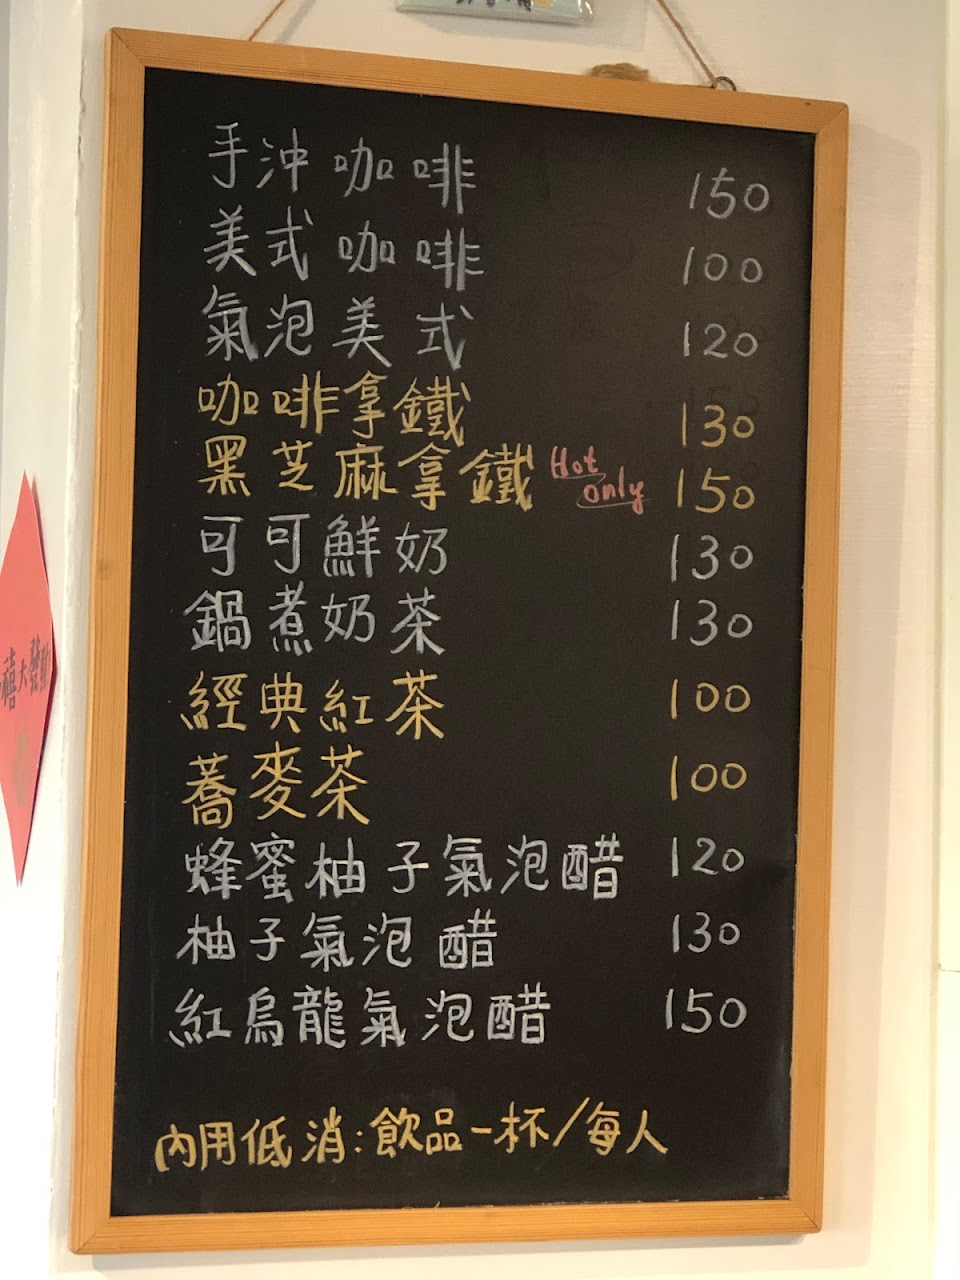 手沖咖啡 150
美式咖啡 100
氣泡美式 120
咖啡拿鐵 130
黑芝麻拿鐵 Hot only 150
可可鮮奶 130
鍋煮奶茶 130
經典紅茶 100
蕎麥茶 100
蜂蜜柚子氣泡醋 120
柚子氣泡醋 130
紅烏龍氣泡醋 150
內用低消:飲品一杯/每人
禧大發財